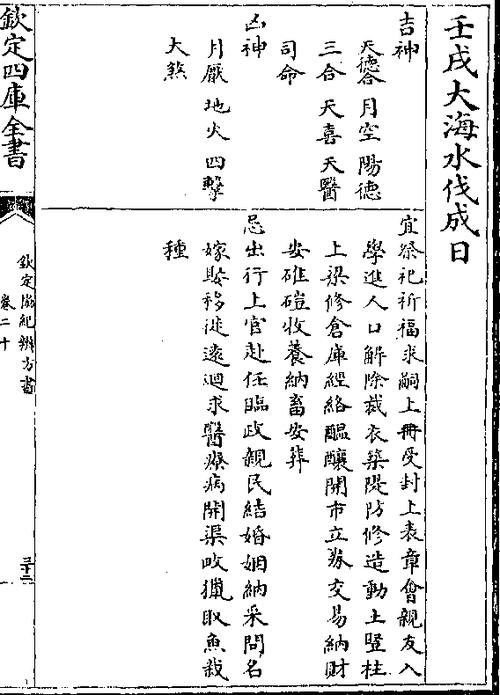 壬戌大海水伐成日
吉神
天德合 月空 陽德
三合 天喜 天醫
司命
凶神
月厭 地火 四擊
大煞
宜祭祀祈福求嗣上冊受封上表章會親友入
學進人口解除裁衣築隄防修造動土竪柱
上梁修倉庫經絡醖釀開市立券交易納財
安碓磑收養納畜安葬
忌出行上官赴任臨政親民結婚姻納采問名
嫁娶移徙遠迴求醫療病開渠畋獵取魚栽
種
欽定四庫全書
欽定協紀辨方書
卷二十
三十二